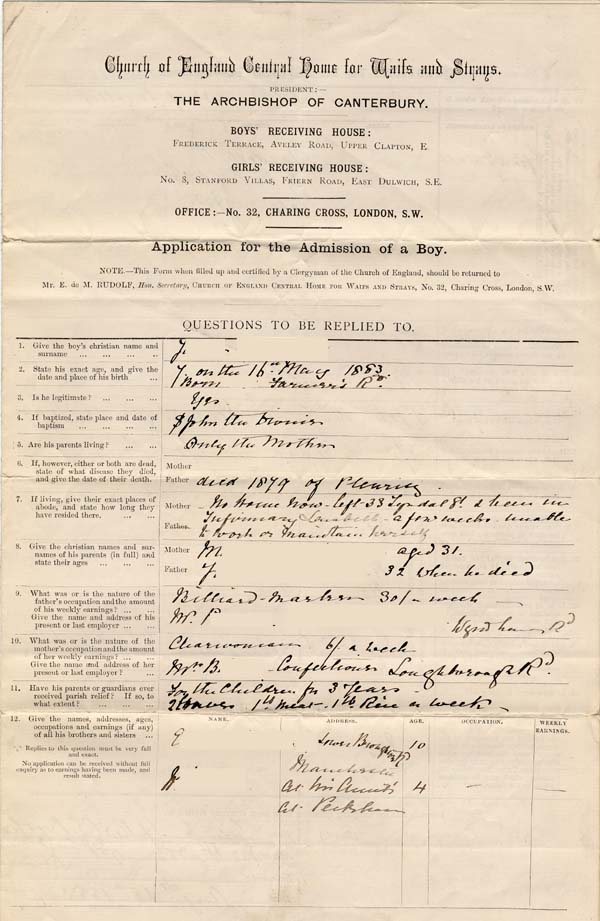 Church of England Central Home for Waifs and Strays.
PRESIDENT:—
THE ARCHBISHOP OF CANTERBURY.
BOYS' RECEIVING HOUSE:
FREDERICK TERRACE, AVELEY ROAD, UPPER CLAPTON, E
GIRLS' RECEIVING HOUSE:
NO. 8, STANFORD VILLAS, FRIERN ROAD, EAST DULWICH, S.E.
OFFICE:—No. 32, CHARING CROSS, LONDON, S.W.
Application for the Admission of a Boy.
NOTE.—This Form when filled up and certified by a Clergyman of the Church of England, should be returned to
Mr. E. de M. RUDOLF, Hon. Secretary, CHURCH OF ENGLAND CENTRAL HOME FOR WAIFS AND STRAYS, No. 32, Charing Cross, London, S.W.
QUESTIONS TO BE REPLIED TO.
1. Give the boy's christian name and
surname ... ... ... ..
J.
2. State his exact age, and give the
date and place of his birth ...
7 on the 16th May 1883.
Born Farmer's Rd.
3. Is he legitimate? ... ... ...
Yes
4. If baptized, state place and date of
baptism ... ... ... ...
St John the Divine
5. Are his parents living? ... ...
Only the Mother
6. If, however, either or both are dead,
state of what disease they died,
and give the date of their death.
Mother
Father died 1879 of Pleurisy.
7. If living, give their exact places of
abode, and state how long they
have resided there. ... ...
Mother No Home Now - left 33 Tyndal St. & been in
Infirmary a few weeks unable
Father.
to work or maintain herself
8. Give the christian names and sur-
names of his parents (in full) and
state their ages ... ...
Mother M. aged 31.
Father J. 32 when he died
9. What was or is the nature of the
father's occupation and the amount
of his weekly earnings? ... ...
Give the name and address of his
present or last employer ... ...
Billiard-Marker 30/- week
Mr. P Wyndham Rd
10. What was or is the nature of the
mother's occupation and the amount
of her weekly earnings? ... ...
Give the name and address of her
present or last employer? ...
Charwoman 6/- a week
Mrs B. Confectioner Loughborough Rd.
11. Have his parents or guardians ever
received parish relief? If so, to
what extent? ... ... ...
For the Children for 3 Years
2 loaves 1lb meat - 1lb Rice a week
12. Give the names, addresses, ages,
occupations and earnings (if any)
of all his brothers and sisters ...
*** Replies to this question must be very full
and exact.
No application can be received without full
enquiry as to earnings having been made, and
result stated.
NAME. ADDRESS. AGE. OCCUPATION. WEEKLY
EARNINGS.
E Lower 10
Manchester
W at his Aunt's 4 — —
at Peckham